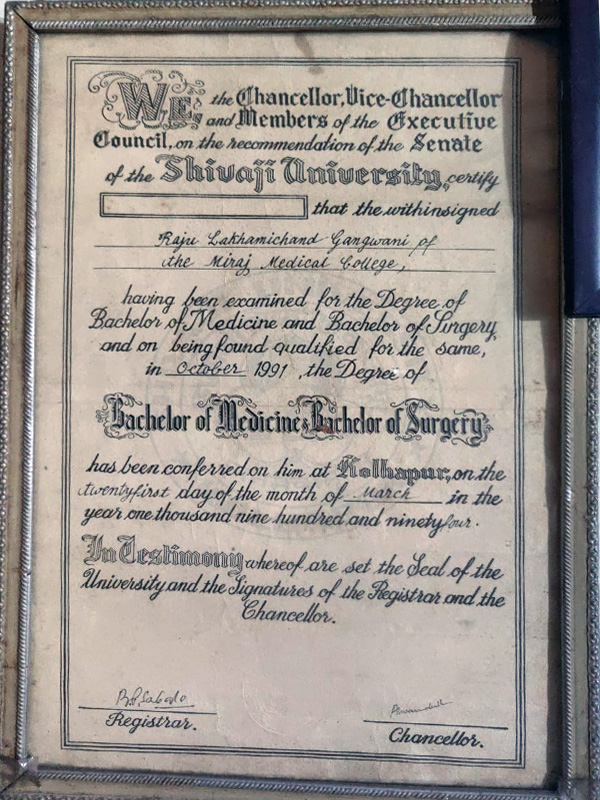 WE, the Chancellor, Vice-Chancellor
and Members of the Executive
Council, on the recommendation of the Senate
of the Shivaji University, certify
that the withinsigned
Raju Lakhamichand Gangwani of
the Miraj Medical College,
having been examined for the Degree of
Bachelor of Medicine and Bachelor of Surgery,
and on being found qualified for the same,
in October 1991, the Degree of
Bachelor of Medicine & Bachelor of Surgery
has been conferred on him at Kolhapur, on the
twentyfirst day of the month of March in the
year one thousand nine hundred and ninetyfour.
In Testimony whereof are set the Seal of the
University and the Signatures of the Registrar and the
Chancellor.
Registrar.
Chancellor.